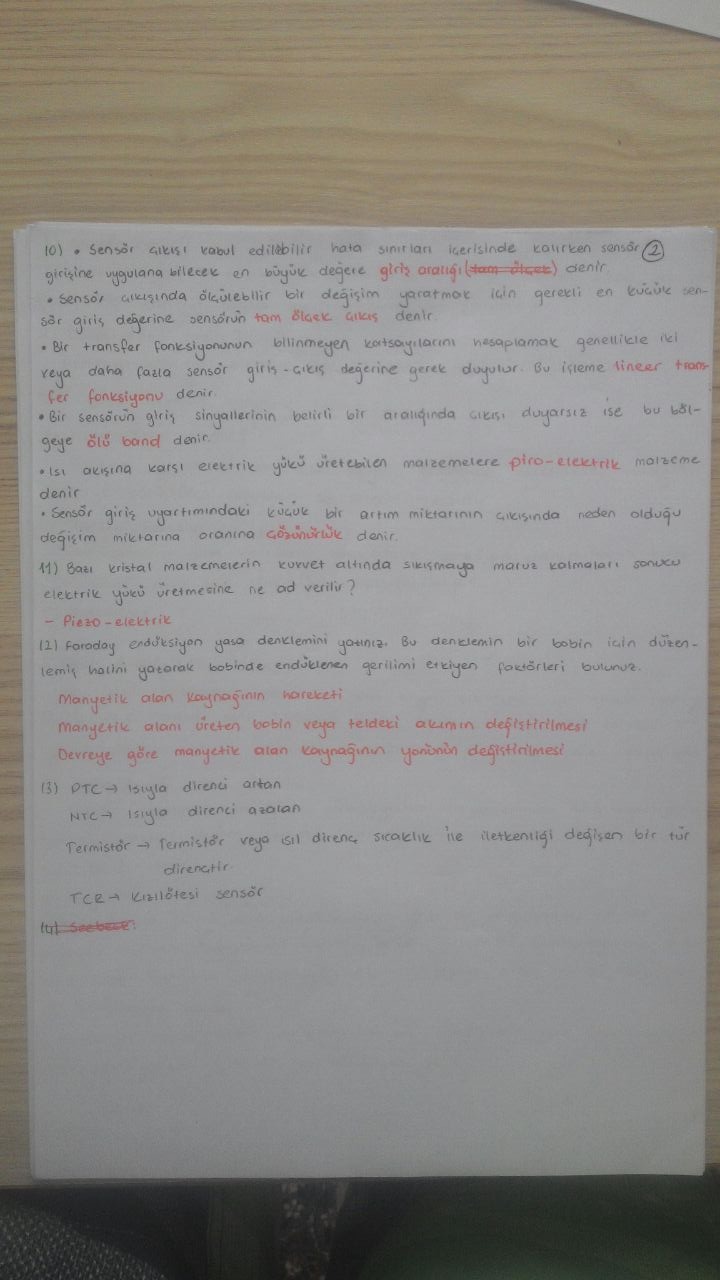 10) • Sensör çıkışı kabul edilebilir hata sınırları içerisinde kalırken sensör 2
girişine uygulana bilecek en büyük değere giriş aralığı (tam ölçek) denir.
• Sensör çıkışında ölçülebilir bir değişim yaratmak için gerekli en küçük sen-
sör giriş değerine sensörün tam ölçek çıkış denir.
• Bir transfer fonksiyonunun bilinmeyen katsayılarını hesaplamak genellikle iki
veya daha fazla sensör giriş-çıkış değerine gerek duyulur. Bu işleme lineer trans-
fer fonksiyonu denir.
• Bir sensörün giriş sinyallerinin belirli bir aralığında çıkışı duyarsız ise bu böl-
geye ölü band denir.
• Isı akışına karşı elektrik yükü üretebilen malzemelere piro-elektrik malzeme
denir
• Sensör giriş uyartımındaki küçük bir artım miktarının çıkışında neden olduğu
değişim miktarına oranına çözünürlük denir.
11) Bazı kristal malzemelerin kuvvet altında sıkışmaya maruz kalmaları sonucu
elektrik yükü üretmesine ne ad verilir?
- Piezo-elektrik
12) Faraday endüksiyon yasa denklemini yazınız. Bu denklemin bir bobin için düzen-
lemiş halini yazarak bobinde endüklenen gerilimi etkiyen faktörleri bulunuz.
Manyetik alan kaynağının hareketi
Manyetik alanı üreten bobin veya teldeki akımın değiştirilmesi
Devreye göre manyetik alan kaynağının yönünün değiştirilmesi
13) PTC → Isıyla direnci artan
NTC → Isıyla direnci azalan
Termistör → Termistör veya ısıl direnç sıcaklık ile iletkenliği değişen bir tür
dirençtir.
TCR → Kızılötesi sensör
14) Seebeck: